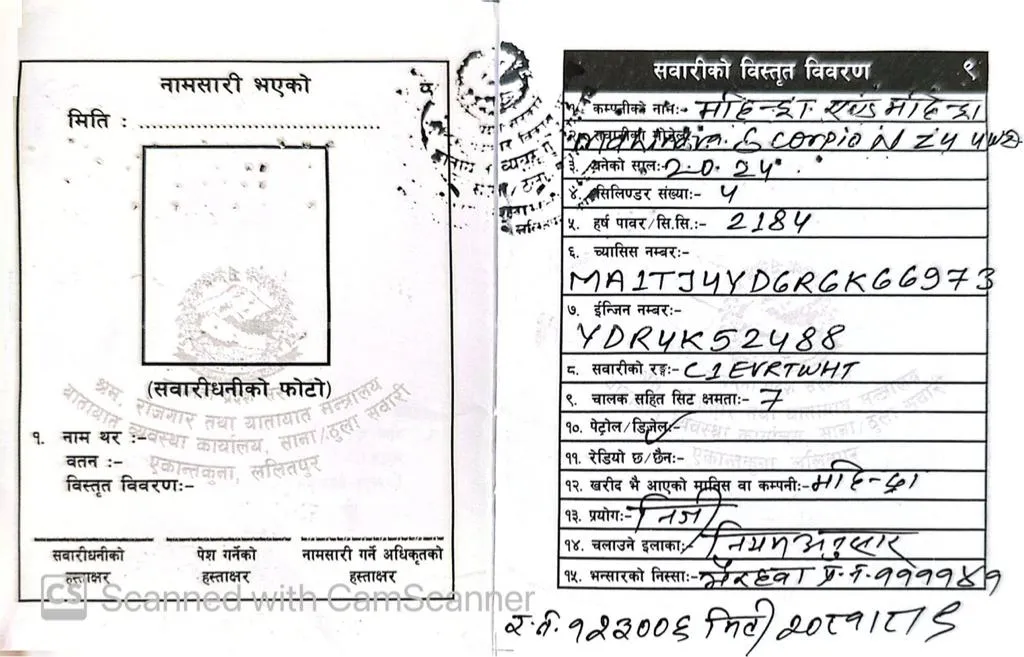 नामसारी भएको
मिति :
(सवारीधनीको फोटो)
श्रम, रोजगार तथा यातायात मन्त्रालय
यातायात व्यवस्था कार्यालय, साना/ठुला सवारी
एकान्तकुना, ललितपुर
१. नाम थर :-
वतन :-
विस्तृत विवरण:-
सवारीधनीको हस्ताक्षर
पेश गर्नेको हस्ताक्षर
नामसारी गर्ने अधिकृतको हस्ताक्षर
सवारीको विस्तृत विवरण ९
१. कम्पनीको नाम:- महिन्द्रा एण्ड महिन्द्रा
Mahindra Scorpio N Z4 4WD
३. बनेको साल:- 2024
४. सिलिण्डर संख्या:- 4
५. हर्ष पावर/सि.सि.:- 2184
६. च्यासिस नम्बर:-
MA1TJ4YD6R6K66973
७. ईन्जिन नम्बर:-
YDR4K52488
८. सवारीको रङ्ग:- C1EVRTWHT
९. चालक सहित सिट क्षमता:- 7
१०. पेट्रोल/डिजेल:-
११. रेडियो छ/छैन:-
१२. खरीद भै आएको मानिस वा कम्पनी:- महिन्द्रा
१३. प्रयोग:- निजी
१४. चलाउने इलाका:- नियमअनुसार
१५. भन्सारको निस्सा:- भैरहवा प्र.नं.
र.नं. १२३००६ मिति
CS Scanned with CamScanner